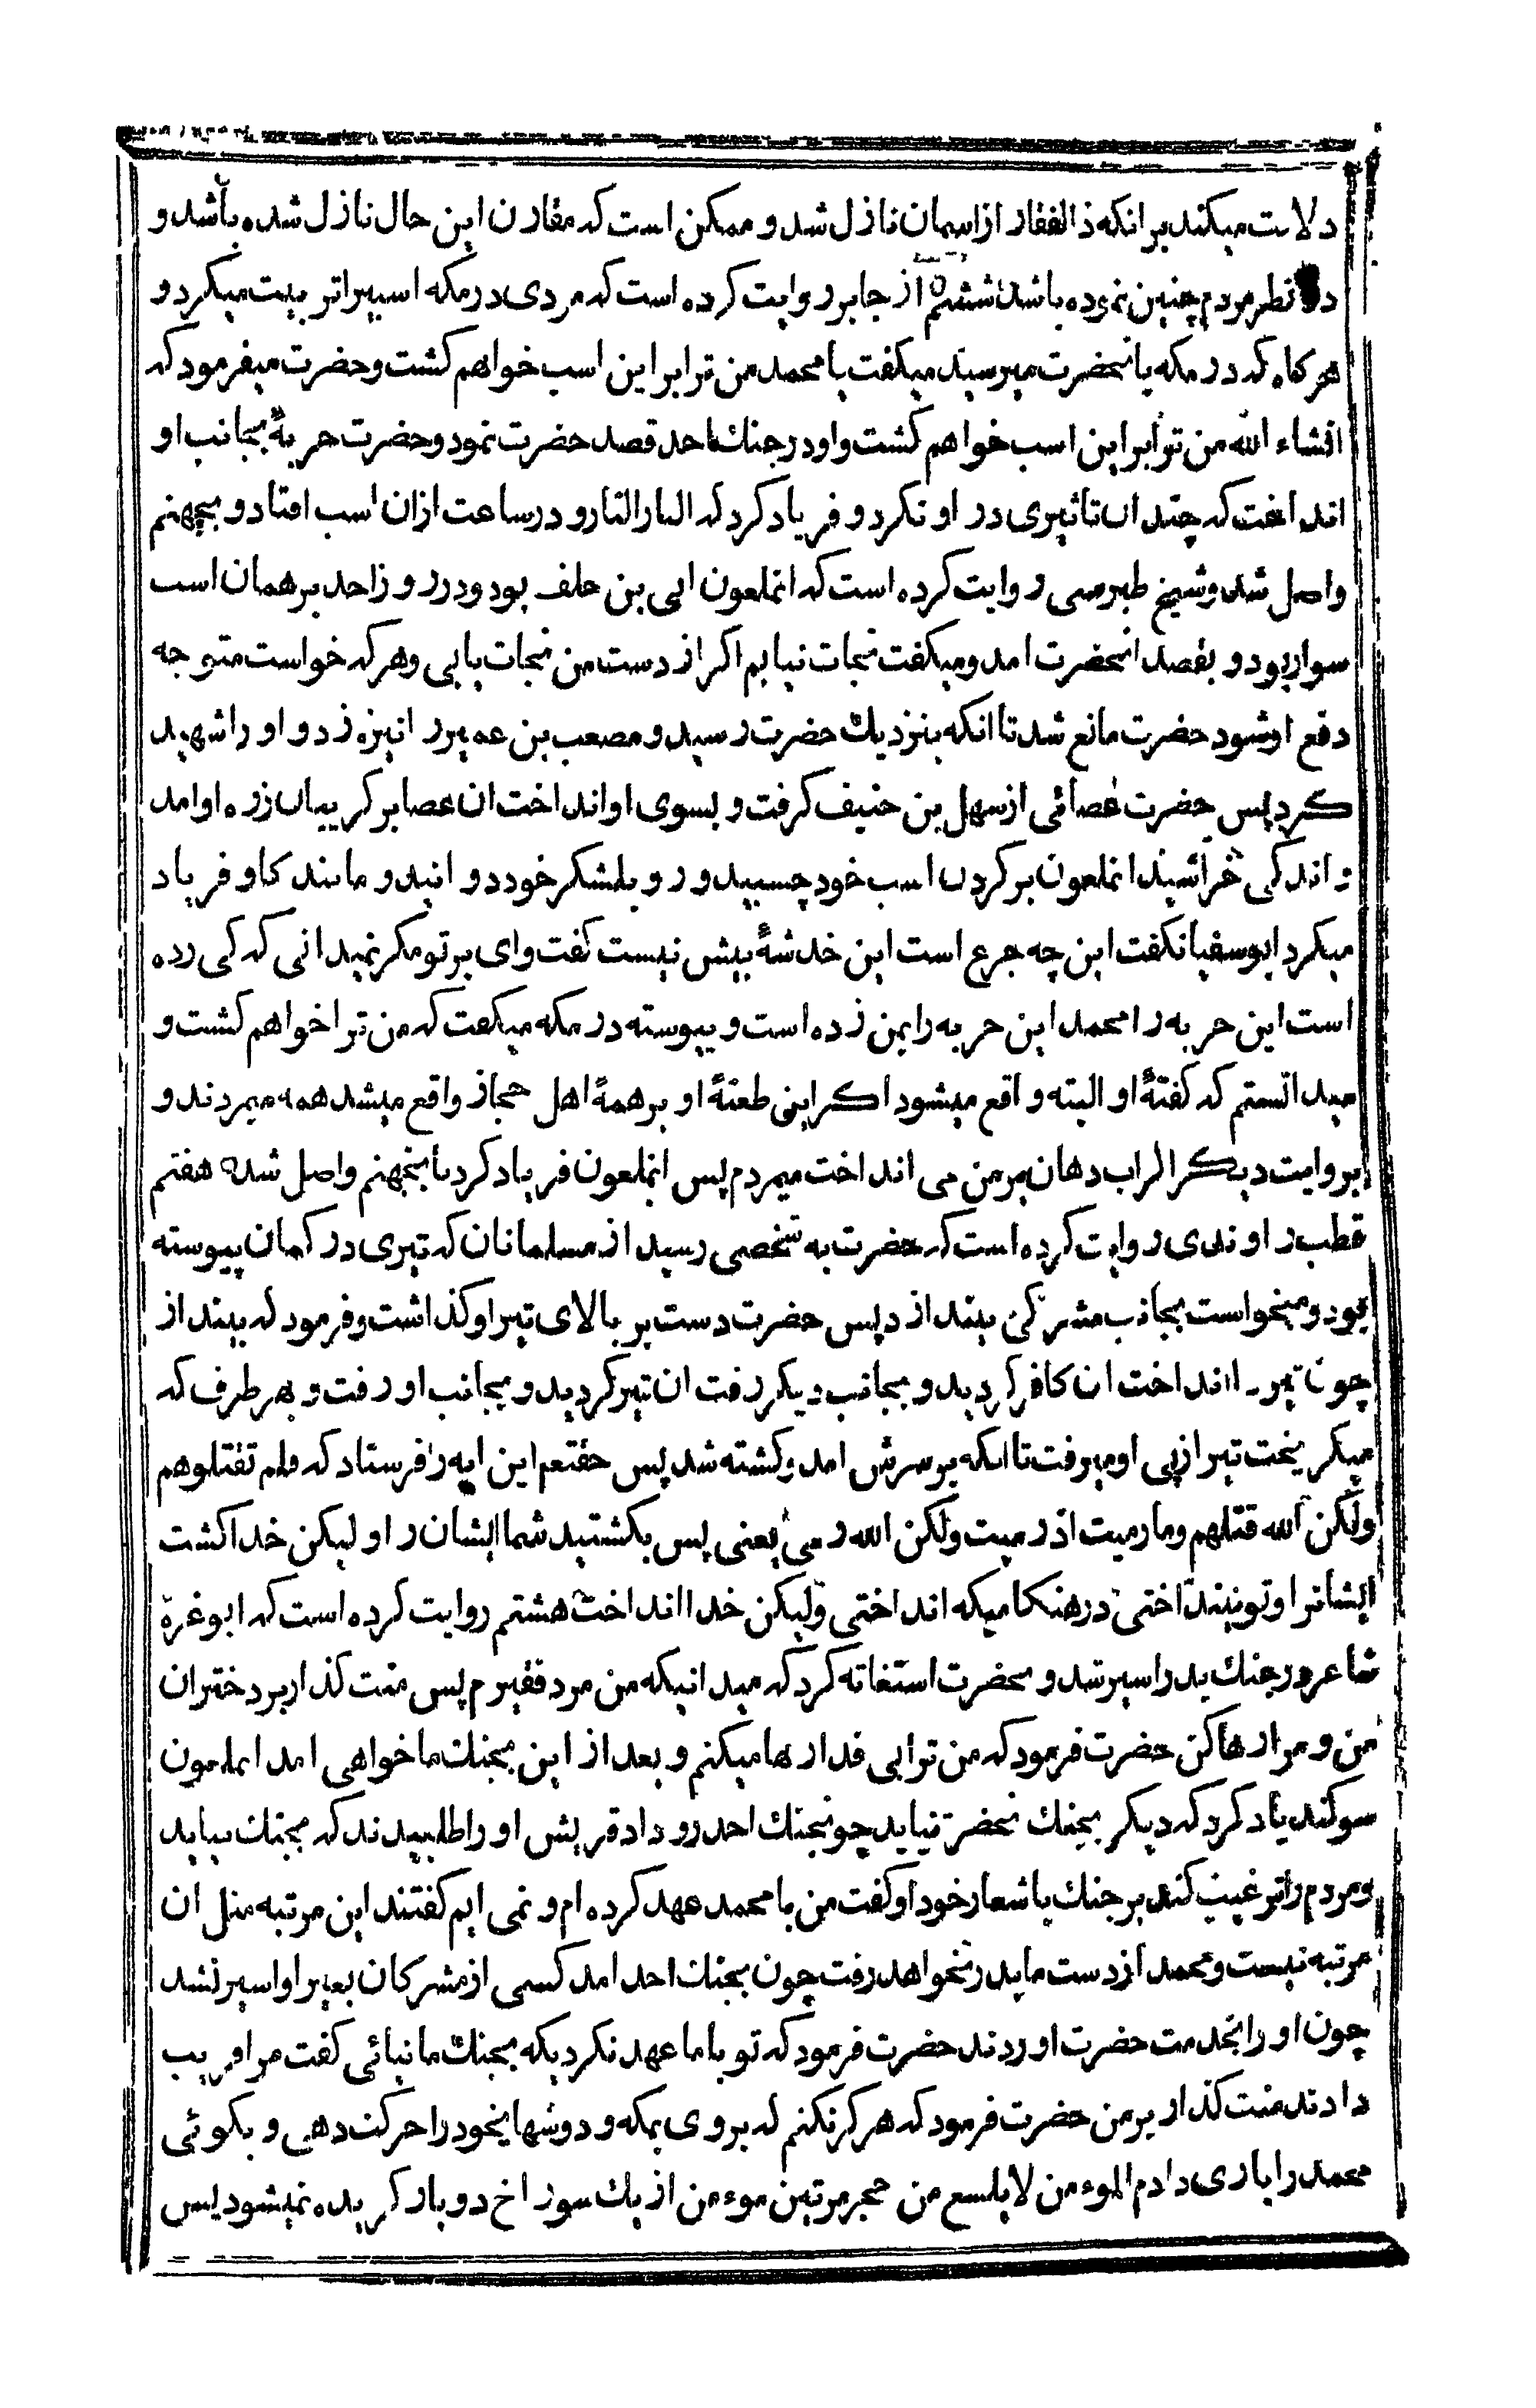 دلالت میکند بر انکه ذالفقار از اسمان نازل شد و ممکن است که مقارن این حال نازل شده باشد و
در نظر مردم چنین نموده باشد ششم از جابر روایت کرده است که مردی در مکه اسبی را تربیت میکرد و
هر کاه که در مکه بانحضرت میرسید میکفت یا محمد من ترا بر این اسب خواهم کشت و حضرت میفرمود که
انشاء الله من ترا بر این اسب خواهم کشت و او در جنك احد قصد حضرت نمود و حضرت حربهٔ بجانب او
انداخت که چندان تاثیری در او نکرد و فریاد کرد که النار النار و در ساعت ازان اسب افتاد و بجهنم
واصل شد و شیخ طبرسی روایت کرده است که انملعون ابی بن خلف بود و در روز احد بر همان اسب
سوار بود و بقصد انحضرت امد و میکفت نجات نیابم اکر از دست من نجات یابی و هر که خواست متوجه
دفع او شود حضرت مانع شد تا انکه بنزدیك حضرت رسید و مصعب بن عمیر را نیزه زد و او را شهید
کرد پس حضرت عصائی از سهل بن حنیف کرفت و بسوی او انداخت ان عصا بر کریبان زره او امد
و اندکی خراشید انملعون بر کردن اسب خود چسبید و رو بلشکر خود دوانید و مانند کاو فریاد
میکرد ابوسفیان کفت این چه جزع است این خدشهٔ بیش نیست کفت وای بر تو مکر نمیدانی که کی زده
است این حربه را محمد این حربه را بمن زده است و پیوسته در مکه میکفت که من ترا خواهم کشت و
میدانستم که کفتهٔ او البته واقع میشود اکر این طعنهٔ او بر همهٔ اهل حجاز واقع میشد همه میمردند و
بروایت دیکر اکر اب دهان بر من می انداخت میمردم پس انملعون فریاد کرد تا بجهنم واصل شد هفتم
قطب راوندی روایت کرده است که حضرت به شخصی رسید از مسلمانان که تیری در کمان پیوسته
بود و میخواست بجانب مشرکی بیندازد پس حضرت دست بر بالای تیر او کذاشت و فرمود که بینداز
چون تیر را انداخت ان کافر کردید و بجانب دیکر رفت ان تیر کردید و بجانب او رفت و بهر طرف که
میکریخت تیر از پی او میرفت تا انکه بر سرش امد و کشته شد پس حقتعم این ایه را فرستاد که فلم تقتلوهم
ولکن الله قتلهم وما رمیت اذ رمیت ولکن الله رمی یعنی پس نکشتید شما ایشان را و لیکن خدا کشت
ایشانرا و تو نینداختی در هنکامیکه انداختی ولیکن خدا انداخت هشتم روایت کرده است که ابو غرة
شاعر در جنك بدر اسیر شد و بحضرت استغاثه کرد که میدانیکه من مرد فقیرم پس منت کذار بر دختران
من و مرا رها کن حضرت فرمود که من ترا بی فدا رها میکنم و بعد از این بجنك ما خواهی امد انملعون
سوکند یاد کرد که دیکر بجنك انحضرت نیاید چون جنك احد رو داد قریش او را طلبیدند که بجنك بیاید
و مردم را ترغیب کند بر جنك باشعار خود او کفت من با محمد عهد کرده ام و نمی ایم کفتند این مرتبه مثل ان
مرتبه نیست و محمد از دست ما بدر نخواهد رفت چون بجنك احد امد کسی از مشرکان بغیر او اسیر نشد
چون او را بخدمت حضرت اوردند حضرت فرمود که تو با ما عهد نکردیکه بجنك ما نیائی کفت مرا فریب
دادند منت کذار بر من حضرت فرمود که هرکز نکنم که بروی بمکه و دوشهایخود را حرکت دهی و بکوئی
محمد را بازی دادم الموءمن لا یلسع من حجر مرتین موءمن از یك سوراخ دو بار کزیده نمیشود پس